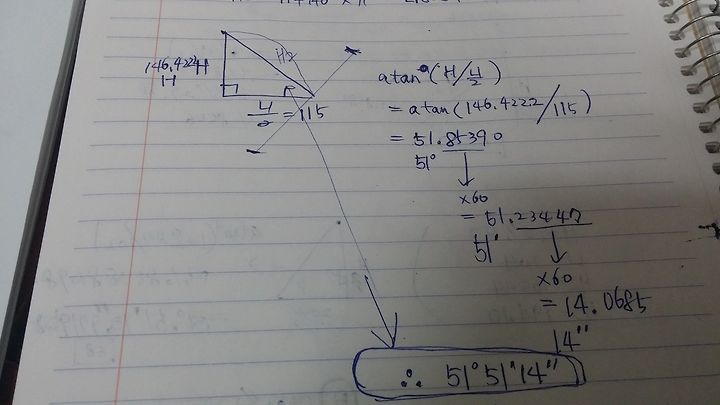 146.4224
H
H2
4/2 = 115
atan (H/4/2)
= atan(146.4222/115)
= 51.85390
51°
×60
= 51.23447
51'
×60
= 14.0685
14"
∴ 51° 51' 14"